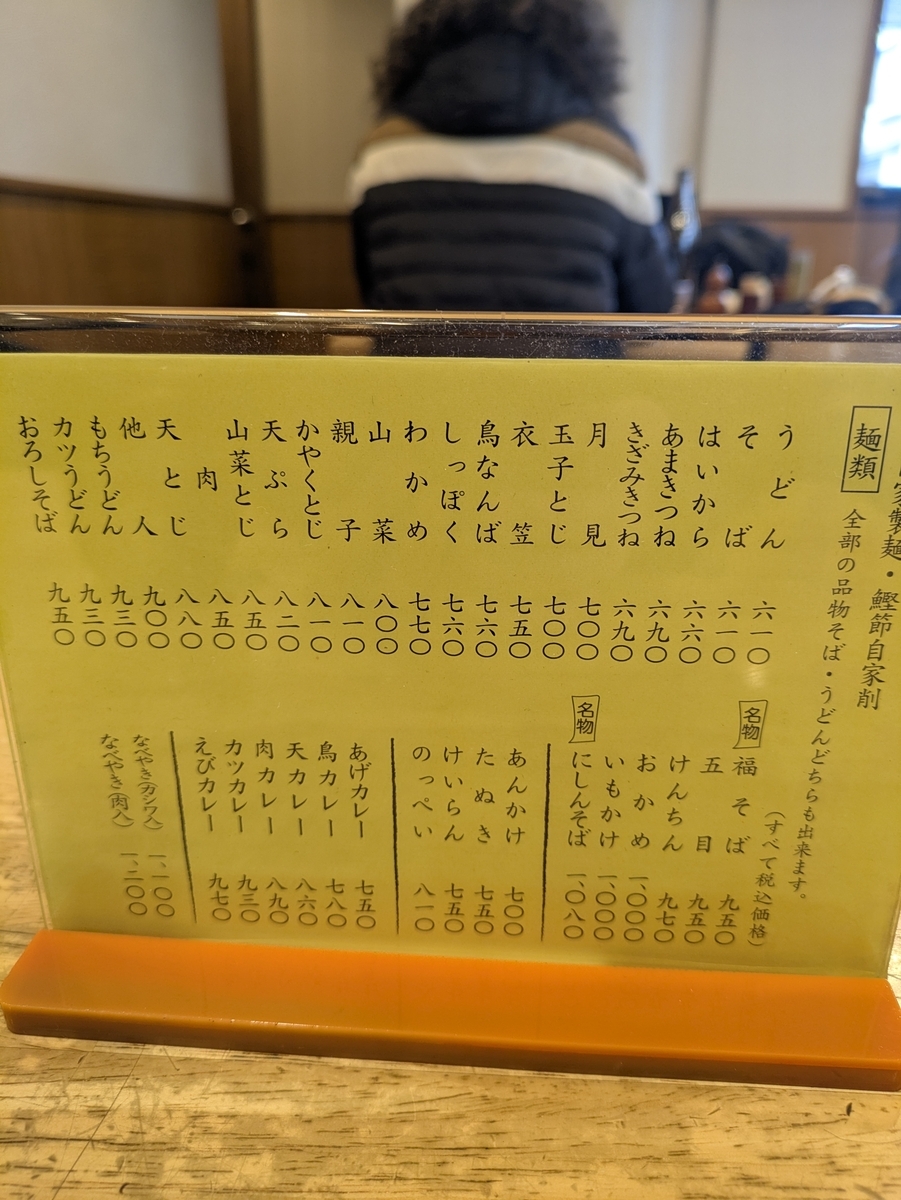 家製麺・鰹節自家削
麺類 全部の品物そば・うどんどちらも出来ます。
(すべて税込価格)
うどん 六一〇
そば 六一〇
はいから 六六〇
あまきつね 六九〇
きざみきつね 六九〇
月見 七〇〇
玉子とじ 七〇〇
衣笠 七五〇
鳥なんば 七六〇
しっぽく 七六〇
わかめ 七七〇
山菜 八〇〇
親子 八一〇
かやくとじ 八一〇
天ぷら 八二〇
山菜とじ 八五〇
肉 八五〇
天とじ 八八〇
他人 九〇〇
もちうどん 九三〇
カツうどん 九三〇
おろしそば 九五〇
名物 福そば 九五〇
五目 九五〇
けんちん 九七〇
おかめ 一、〇〇〇
いもかけ 一、〇〇〇
名物 にしんそば 一、〇八〇
あんかけ 七〇〇
たぬき 七五〇
けいらん 七五〇
のっぺい 八一〇
あげカレー 七五〇
鳥カレー 七八〇
天カレー 八六〇
肉カレー 八九〇
カツカレー 九三〇
えびカレー 九七〇
なべやき(カシワ入) 一、一〇〇
なべやき(肉入) 一、二〇〇